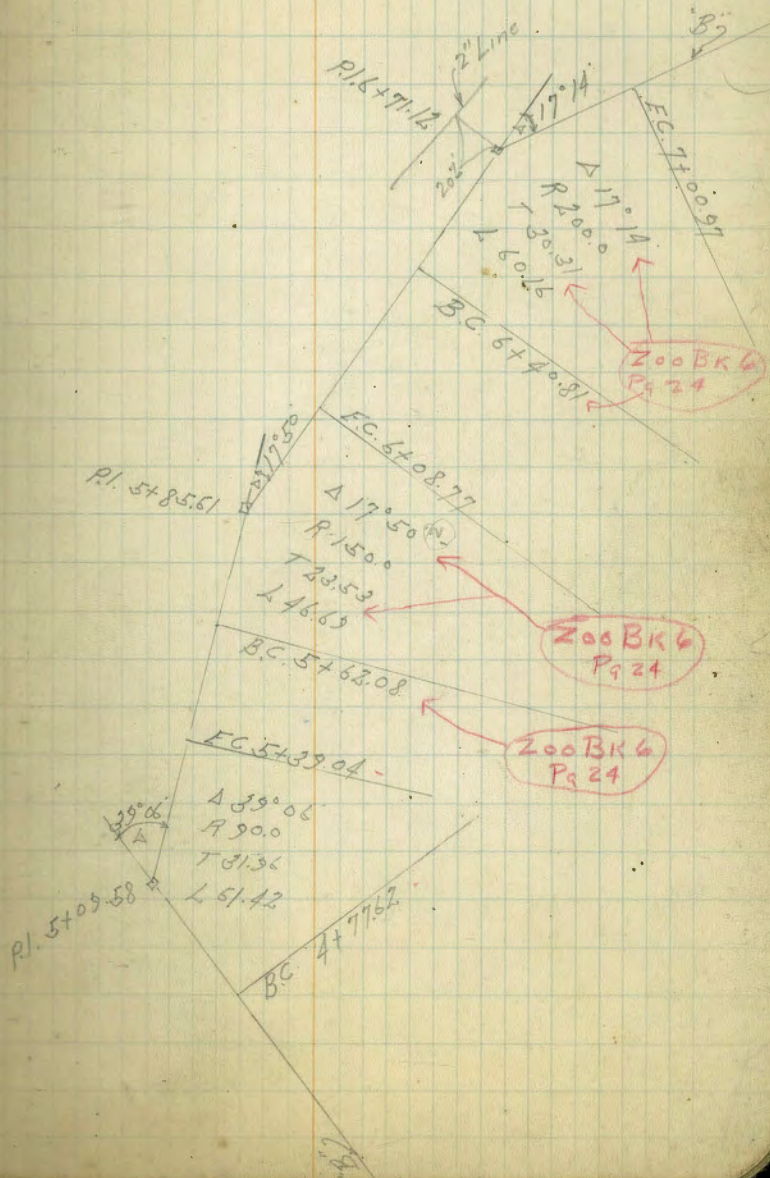 "B"
2" Line
P.I. 6+71.12
Δ 17°14'
20.2'
E.C. 7+00.97
Δ 17°14'
R 200.0
T 30.31
L 60.16
B.C. 6+40.81
Zoo BK 6
Pg 24
Δ 17°50'
P.I. 5+85.61
E.C. 6+08.77
Δ 17°50'
R 150.0
T 23.53
L 46.69
Zoo BK 6
Pg 24
B.C. 5+62.08
Zoo BK 6
Pg 24
E.C. 5+39.04
39°06'
Δ
Δ 39°06'
R 90.0
T 31.96
L 61.42
P.I. 5+09.58
B.C. 4+77.62
"B"